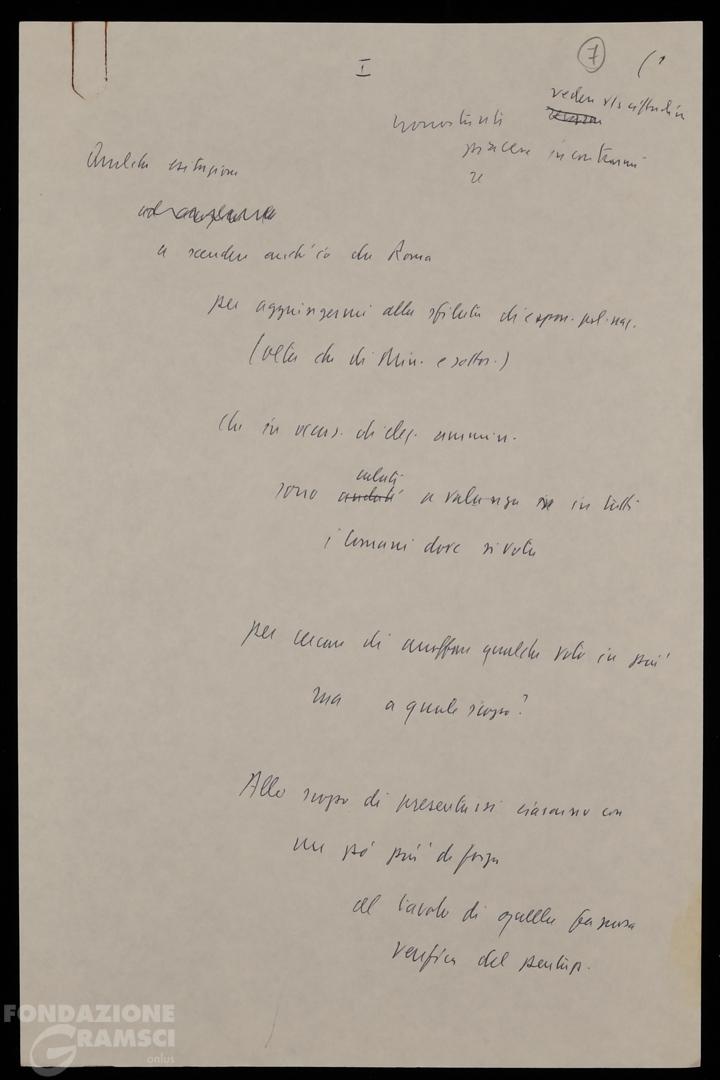 7
I
vedere
nonostante
piacere incontrarmi
Qualche esitazione
a scendere anch'io da Roma
per aggiungermi alla sfilata di espon. pol. naz.
(oltre che di Min. e sottos.)
che in occas. di elez. ammin.
sono andati calati a valanga in tutti
i Comuni dove si vota
per cercare di arraffare qualche voto in più
ma a quale scopo?
Allo scopo di presentarsi ciascuno con
un pò più di forza
al tavolo di quella famosa
verifica del pentap.
FONDAZIONE
GRAMSCI
onlus